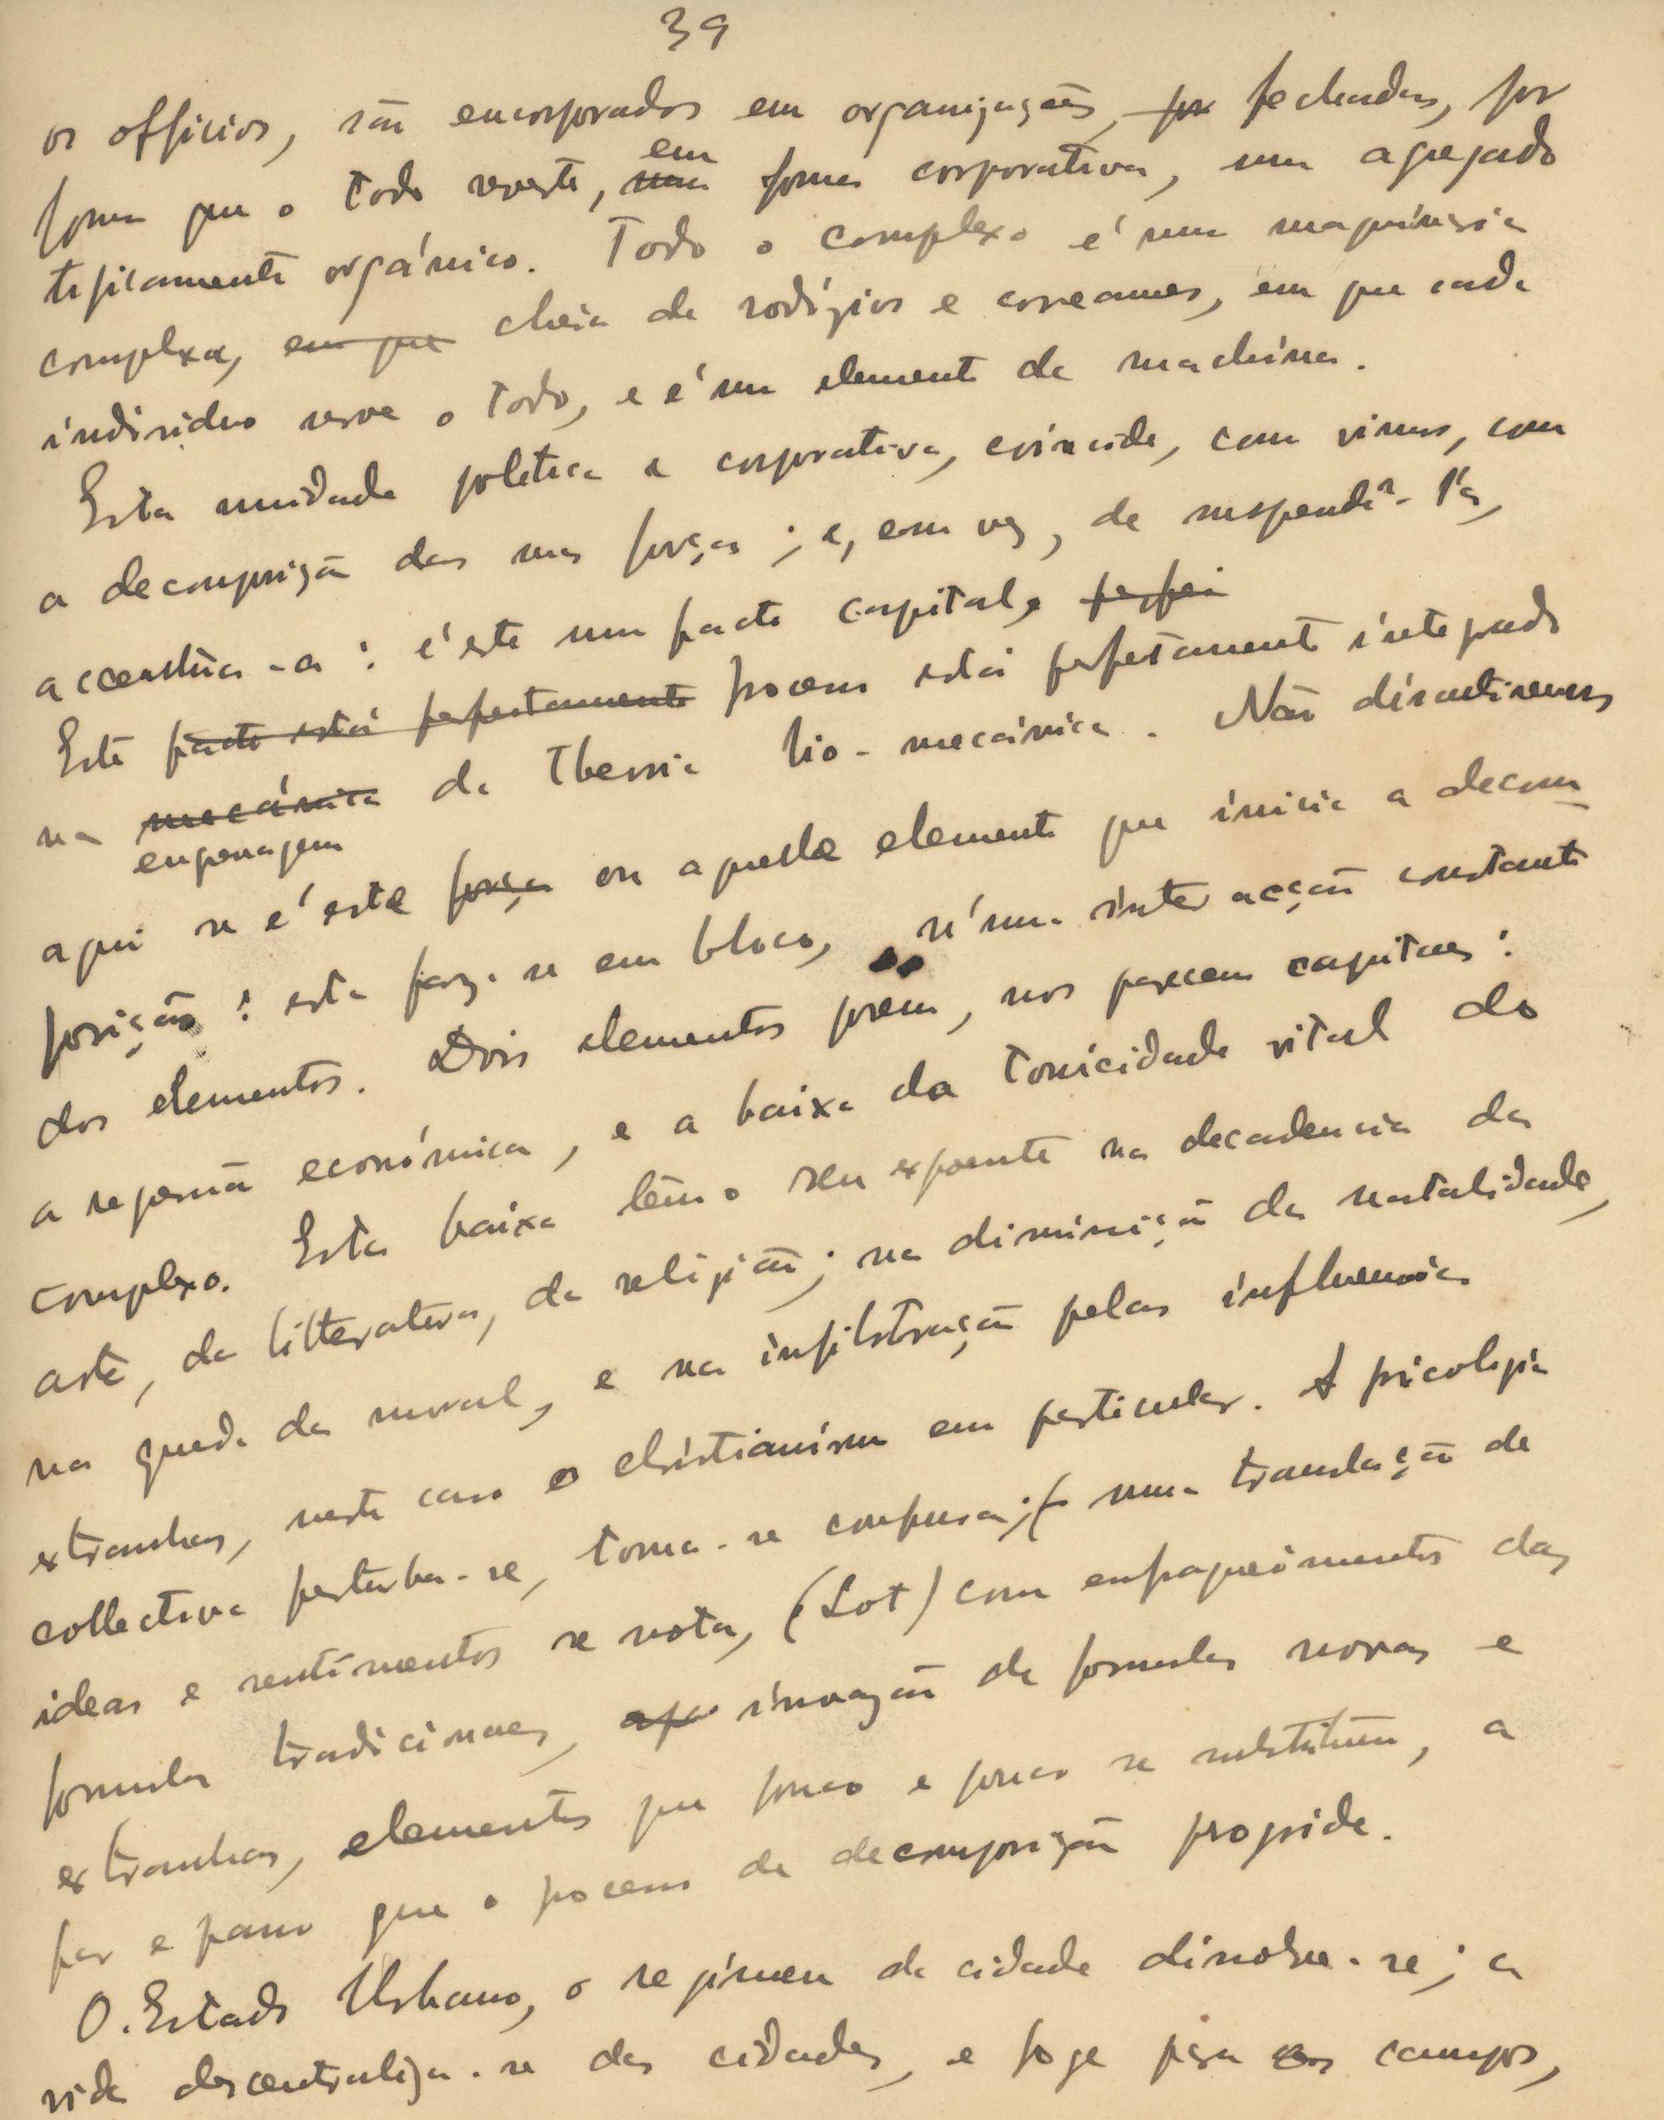 39
os officios, são encorporados em organizações, por fechadas, por
forma que o todo reveste, em uma forma corporativa, um agregado
tipicamente orgánico. Todo o complexo é uma maquinaria
complexa, em que cheia de rodígios e correames, em que cada
individuo serve o todo, e é um elemento da machina.
Esta unidade politica e corporativa, coincide, como vimos, com
a decomposição das suas forças; e, em vez, de suspendê-la,
accentúa-a: é este um facto capital, perfei
Este facto está perfeitamente processo está perfeitamente integrado
na mecánica da theoria bio-mecánica. Não discutiremos
engrenagem
aqui se é este força ou aquelle elemento que inicia a decom
posição: esta faz-se em bloco, n'uma inter acção constante
dos elementos. Dois elementos porém, nos parecem capitaes:
a regressão económica, e a baixa da tonicidade vital do
complexo. Esta baixa têm o seu expoente na decadencia da
arte, da litteratura, da religião; na diminuição da natalidade,
na queda da moral, e na infiltração pelas influencias
extranhas, neste caso o christianismo em particular. A psicologia
collectiva perturba-se, torna-se confusa; uma translação de
ideas e sentimentos se nota, (Lot) com enfraquecimentos das
formulas tradicionaes, invasão de formulas novas e
extranhas, elementos que pouco e pouco se substituem, a
par e passo que o processo da decomposição progride.
O. Estado Urbano, o regímen da cidade dissolve-se; a
vida descentraliza-se das cidades, e foge para os campos,